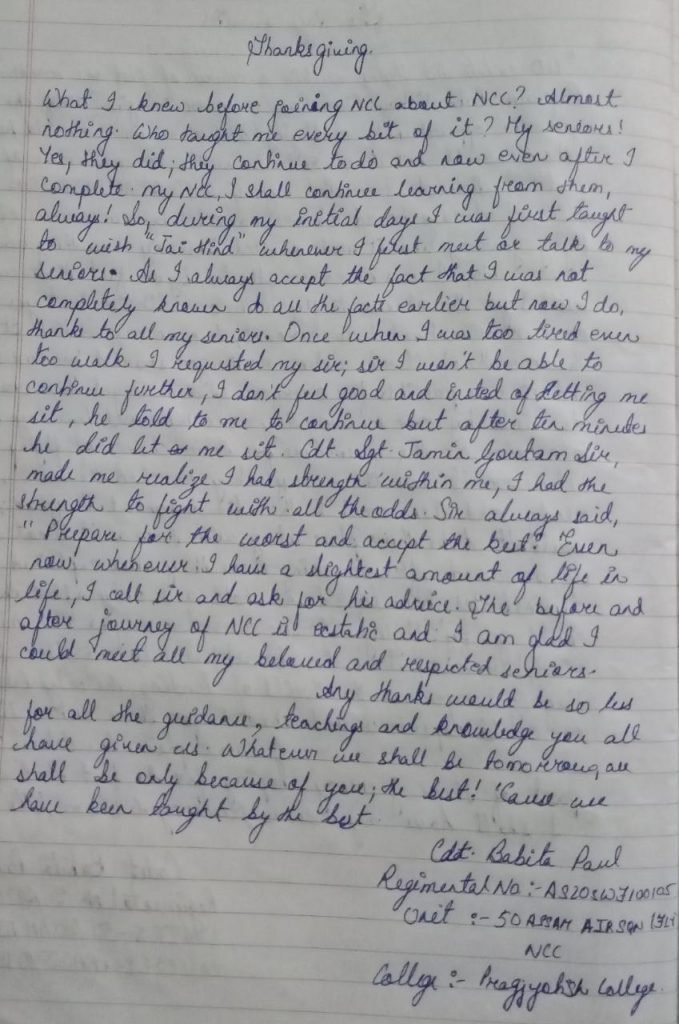 Thanksgiving.
What I knew before joining NCC about NCC? Almost
nothing. Who taught me every bit of it? My seniors!
Yes, they did; they continue to do and now even after I
complete my NCC, I shall continue learning from them,
always! So, during my initial days I was first taught
to wish "Jai Hind" whenever I first meet or talk to my
seniors. As I always accept the fact that I was not
completely known to all the facts earlier but now I do,
thanks to all my seniors. Once when I was too tired even
too walk I requested my sir; sir I won't be able to
continue further, I don't feel good and insted of letting me
sit, he told to me to continue but after ten minutes
he did let me sit. Cdt. Sgt. Jamin Goutam Sir,
made me realize I had strength within me, I had the
strength to fight with all the odds. Sir always said,
"Prepare for the worst and accept the best." Even
now whenever I have a slightest amount of life in
life, I call sir and ask for his advice. The before and
after journey of NCC is ecstatic and I am glad I
could meet all my beloved and respected seniors.
Any thanks would be so less
for all the guidance, teachings and knowledge you all
have given us. Whatever we shall be tomorrow, we
shall be only because of you; the best! 'Cause we
have been taught by the best.
Cdt. Babita Paul
Regimental No :- AS20SWF100105
Unit :- 50 ASSAM AIR SQN
NCC
College :- Pragjyotish College.